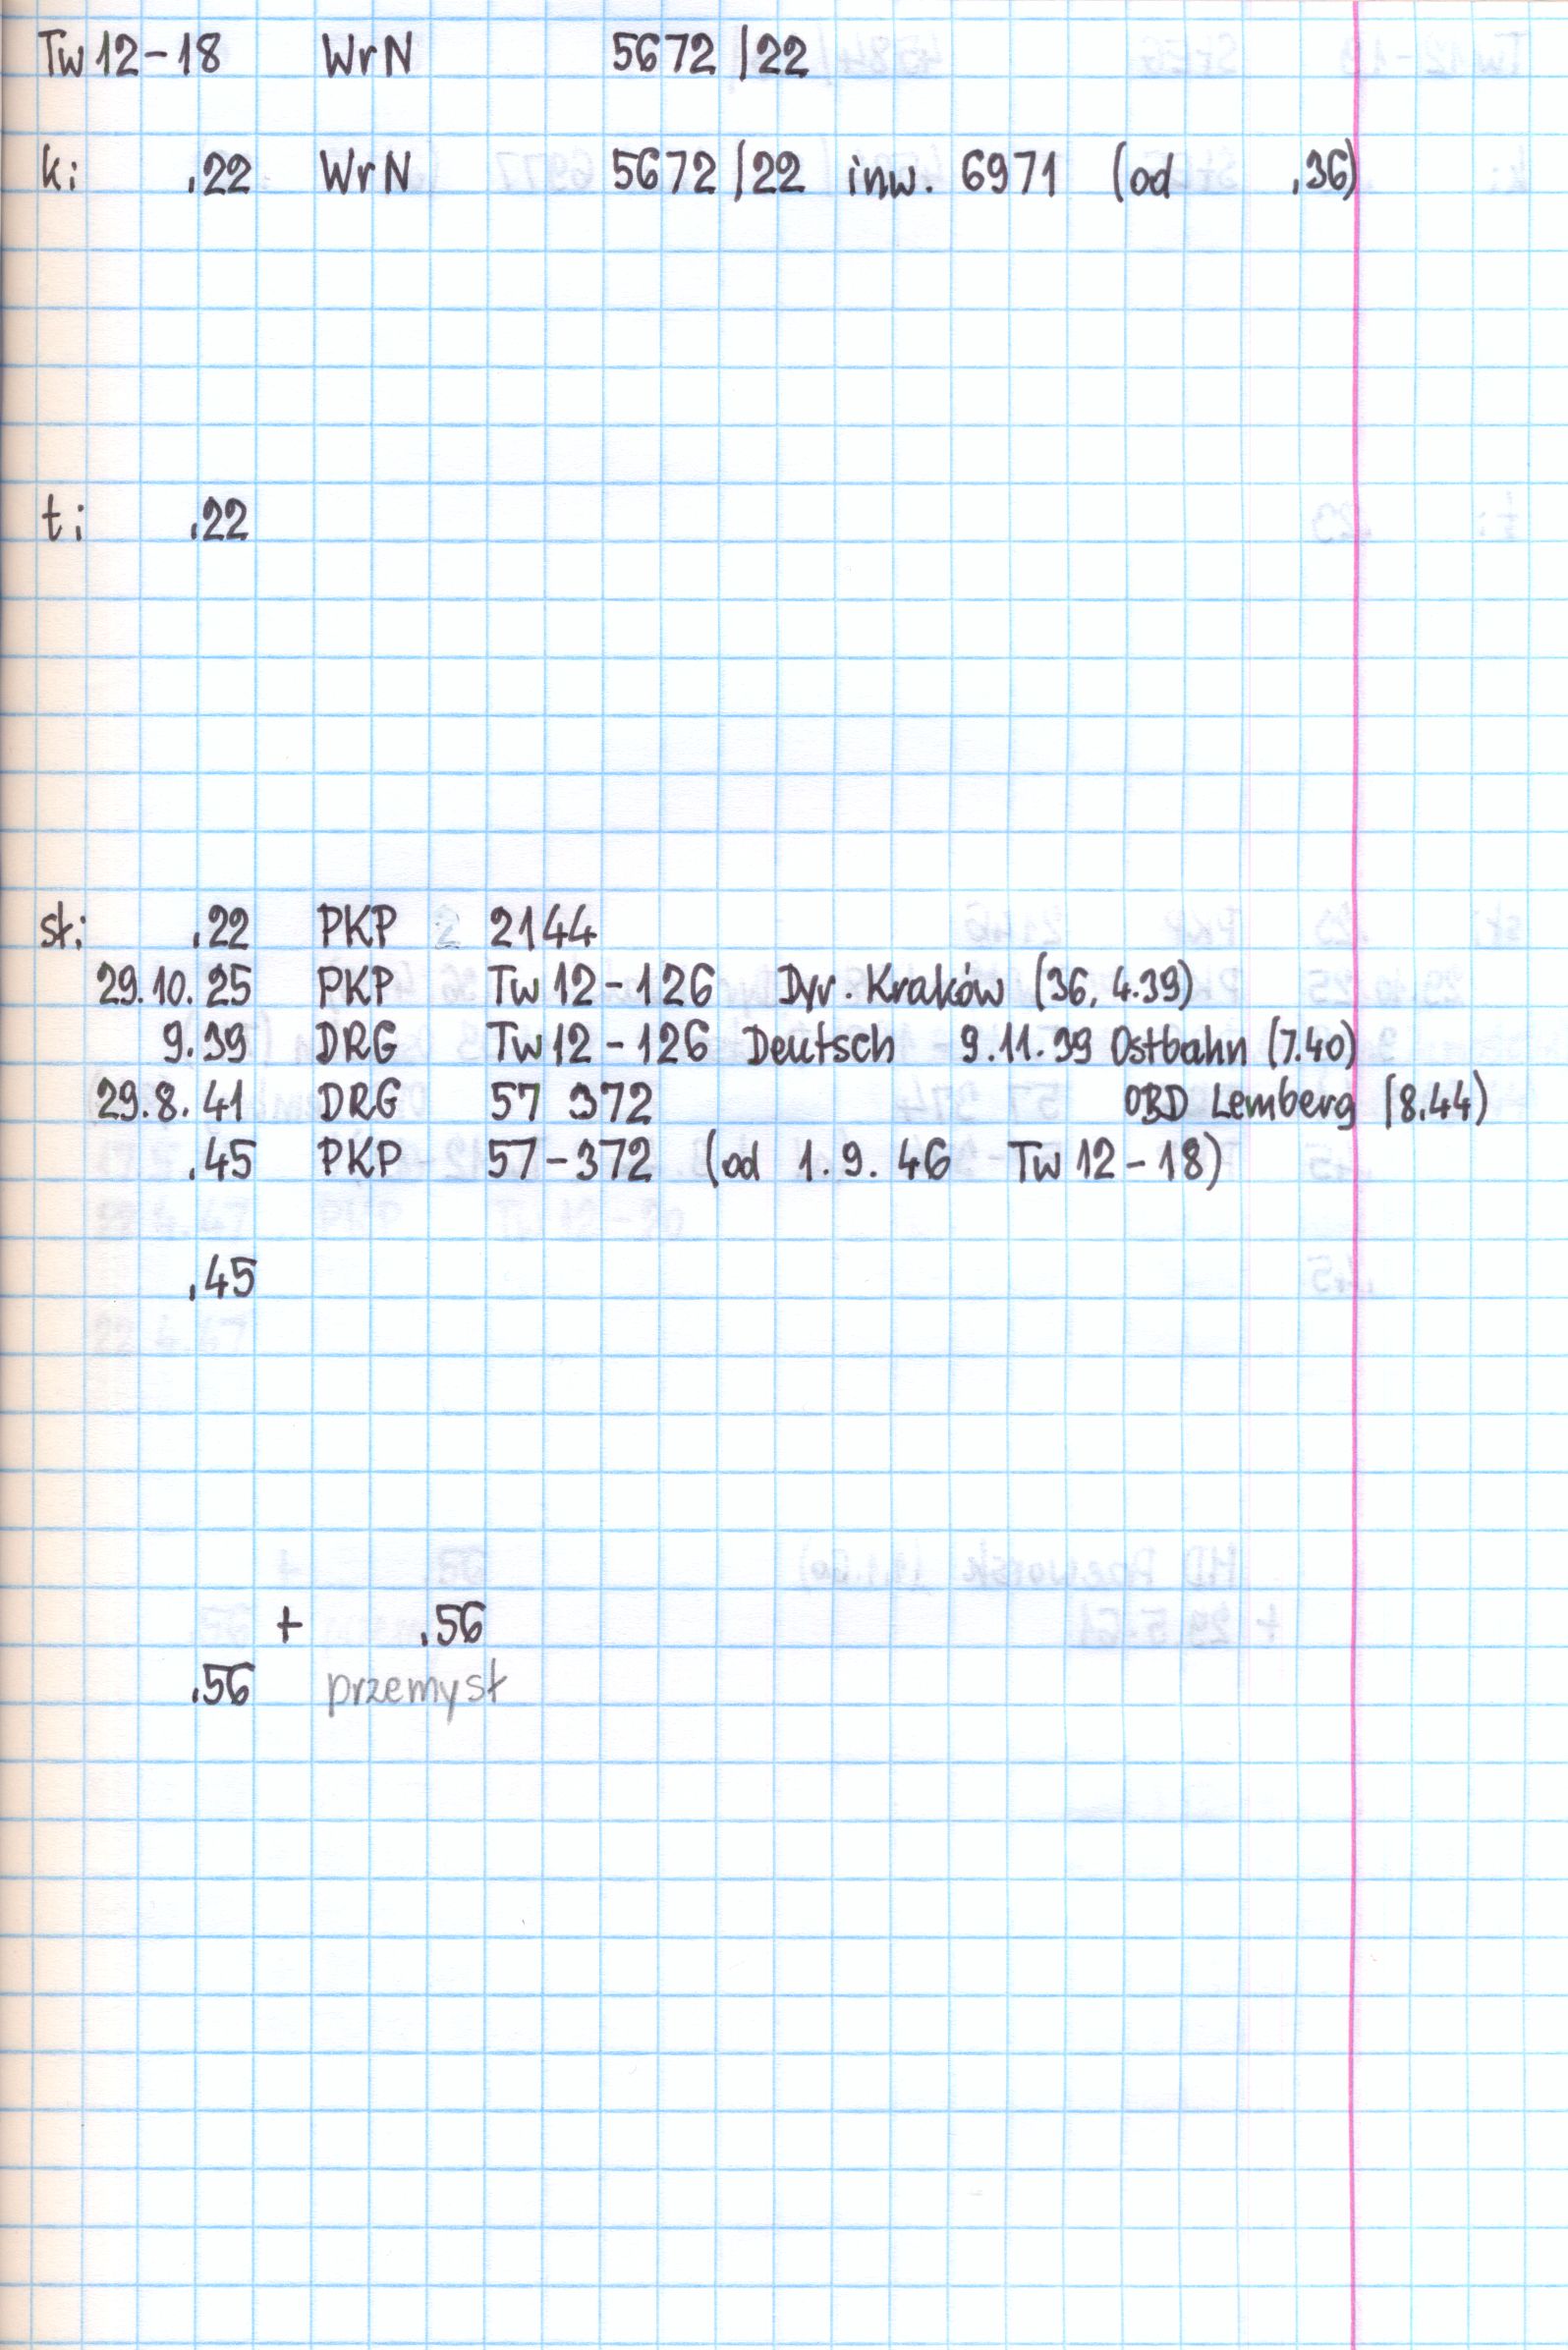 Tw 12-18 WrN 5672/22
k: .22 WrN 5672/22 inw. 6971 (od .36)
t: .22
st: .22 PKP 2144
29.10.25 PKP Tw 12-126 Dyr. Kraków (36, 4.39)
9.39 DRG Tw 12-126 Deutsch 9.11.39 Ostbahn (7.40)
29.8.41 DRG 57 372 OBD Lemberg (8.44)
.45 PKP 57-372 (od 1.9.46 Tw 12-18)
.45
+ .56
.56 przemysł